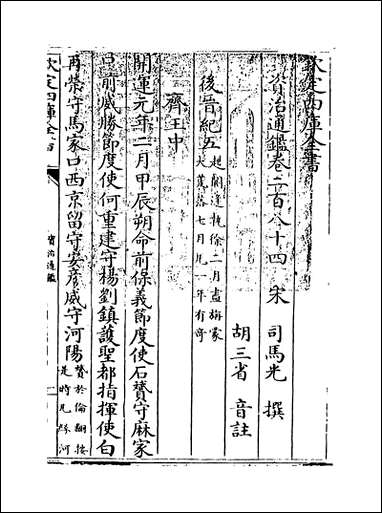 欽定四庫全書
資治通鑑卷二百八十四
宋 司馬光 撰
胡三省 音註
後晉紀五起閼逢執徐二月盡旃蒙大荒落七月凡一年有奇
齊王中
開運元年二月甲辰朔命前保義節度使石贇守麻家
口前威勝節度使何重建守楊劉鎮護聖都指揮使白
再榮守馬家口西京留守安彥威守河陽贇於倫翻按是時凡緣河
欽定四庫全書
資治通鑑